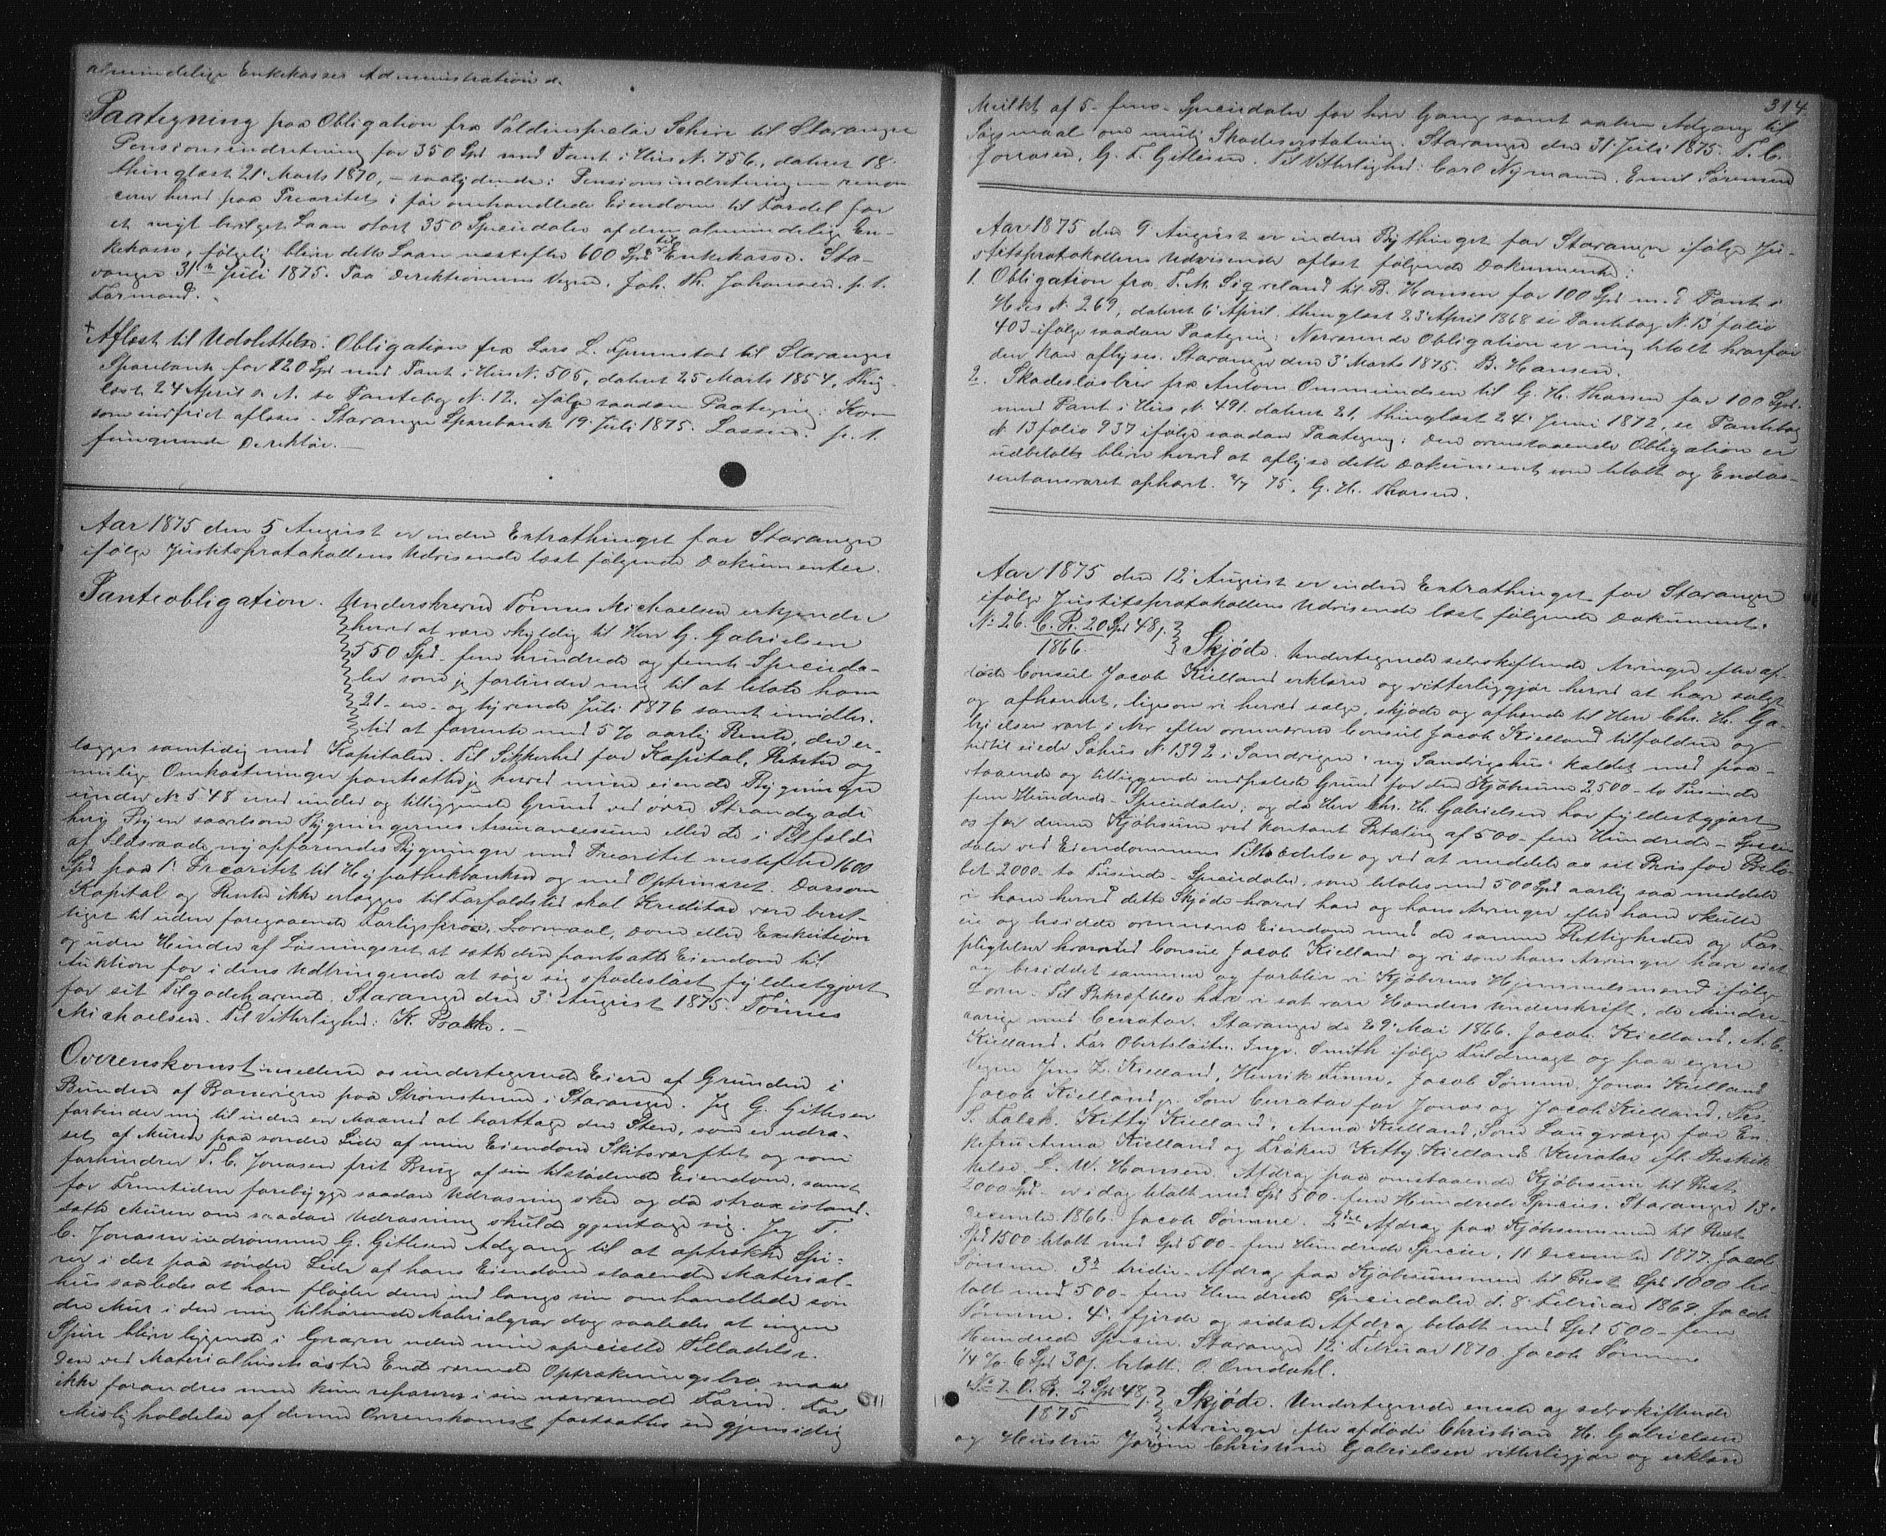 almindelige Enkekasses Administration d.
Paategning paa Obligation fra Toldinspektør Schive til Stavanger
Pensionsindretning for 350 Spd med Pant i Hus N. 756, dateret 18
thinglæst 21 Marts 1870, - saalydende: Pensionsindretningen renon-
cerer herved paa Prioritet i før omhandlede Eiendom til Fordel for
et nyt bevilget Laan stort 350 Speciedaler af den almindelige En-
kekasse, følgelig bliver dette Laan næstefter 600 Spd til Enkekasse. Sta-
vanger 31 Juli 1875. Paa Direktionens Vegne. Joh. Th. Johansen p. t.
Formand.
+ Aflæst til Udslettelse: Obligation fra Lars L. Tjemsted til Stavanger
Sparebank for 220 Spd med Pant i Hus N. 505, dateret 25 Marts 1854, thing-
læst 24 April s. A. se Pantebog N. 12, ifølge saadan Paategning: Kan
som indfriet aflæses. Stavanger Sparebank 19 Juli 1875. Lassen. p. t.
fungerende Direktør.
Aar 1875 den 5 August er inden Extrathinget for Stavanger
ifølge Justitsprotokollens Udvisende læst følgende Dokumenter.
Panteobligation. Underskrevne Tønnes Michaelsen erkjender
herved at være skyldig til Herr G. Gabrielsen
550 Spd - fem hundrede og femti Speciedal-
ler som jeg forbinder mig til at betale ham
21 - en - og tyvende Juli 1876 samt imidler-
tid at forrente med 5% aarlig Rente, der er-
lægges samtidig med Kapitalen. Til Sikkerhed for Kapital, Renter og
mulige Omkostninger pantsætter jeg herved mine eiende Bygninger
under N. 548 med under og tilliggende Grund ved øvre Strandgade
her i Byen saavelsom Bygningernes Assurancesum eller de i Tilfælde
af Ildsvaade ny opførendes Bygninger med Prioritet nestefter 1600
Spd paa 1 Prioritet til Hypothekbanken og med Oprinsret. Dersom
Kapital og Rente ikke erlægges til Forfaldstid skal Kreditor være beret-
tiget til uden foregaaende Forligsprøve, Lovmaal, Dom eller Exekution
og uden Hinder af Løsningsret at sætte den pantsatte Eiendom til
Auktion for i dens Udbringende at søge sig skadesløst fyldestgjort
for sit Tilgodehavende. Stavanger den 3 August 1875. Tønnes
Michaelsen. Til Vitterlighed: K. Bakke. -
Overenskomst mellem os undertegnede Eiere af Grunden i
Bunden af Banevigen paa Strømsteen i Stavanger. Jeg G. Gitlesen
forbinder mig til inden en Maaned at borttage den Sten, som er udra-
set af Muren paa søndre Side af min Eiendom Skibsværftet og som
forhindrer T. C. Jonasen frit Brug af sin tilstødende Eiendom, samt
for Fremtiden forebygge saadan Udrasning sker og da strax istand-
sætte Muren om saadan Udrasning skulde gjentage sig. Jeg T.
C. Jonasen indrømmer G. Gitlesen Adgang til at optrække Spi-
rer i det paa søndre Side af hans Eiendom staaende Material-
hus saaledes at han fløder dem ind langs sin omhandlede søn-
dre Mur i den mig tilhørende Materialgrav dog saaledes at ingen
Spire bliver liggende i Graven uden min specielle Tilladelse.
Den ved Materialhusets østre Ende værende Optrækningsbro maa
ikke forandres men kun repareres i sin nuværende Form. For
Misligholdelse af denne Overenskomst fastsættes en gjensidig
314
Mulkt af 5 - fem - Speciedaler for hver Gang samt aaben Adgang til
Søgsmaal om mulig Skadeserstatning. Stavanger den 31 Juli 1875. T. C.
Jonasen. G. T. Gitlesen. Til Vitterlighed: Carl Nymann. Emil Sørensen
Aar 1875 den 9 August er inden Bythinget for Stavanger ifølge Ju-
stitsprotokollens Udvisende aflæst følgende Dokumenter:
1. Obligation fra T. M. Sigveland til B. Hansen for 100 Spd med Pant i
Hus N. 269, dateret 6 April, thinglæst 23 April 1868 se Pantebog N. 13 folio
403 ifølge saadan Paategning: Nærværende Obligation er mig betalt hvorfor
den kan aflyses. Stavanger den 3 Marts 1875. B. Hansen.
2. Skadesløsbrev fra Anton Ommundsen til G. H. Thorsen for 100 Spd.
med Pant i Hus N. 491. dateret 21, thinglæst 24 Juni 1872, se Pantebog
N. 13 folio 937 ifølge saadan Paategning: Den ovenstaaende Obligation er
udbetalt bliver herved at aflyse dette Dokument som betalt og Endos-
sentansvaret ophørt. 75. G. H. Thorsen.
Aar 1875 den 12 August er inden Extrathinget for Stavanger
ifølge Justitsprotokollens Udvisende læst følgende Dokument:
No 26. C. P. 20 Spd 48 s.
1866.
Skjøde. Undertegnede selvskiftende Arvinger efter af-
døde Consul Jacob Kielland erklærer og vitterliggjør herved at have solgt
og afhændet, ligesom vi herved sælge, skjøde og afhænde til Herr Chr. H. Ga-
brielsen vort i Arv efter ovennævnte Consul Jacob Kielland tilfaldne og
hidtil eiede Søhus N. 1392 i Sandvigen "ny Sandvigshus" kaldet med paa-
staaende og tilliggende indpælede Grund for den Kjøbesum 2,500 - to Tusinde
fem Hundrede - Speciedaler; og da Herr Chr. H. Gabrielsen har fyldestgjort
os for denne Kjøbesum ved kontant Betaling af 500 - fem Hundrede - Specie-
daler ved Eiendommens Tiltrædelse og ved at meddele os sit Bevis for Belø-
bet 2000 - to Tusind - Speciedaler, som betales med 500 Spd aarlig saa meddele
vi ham herved dette Skjøde hvorved han og hans Arvinger efter ham skulle
eie og besidde ovennævnte Eiendom med de samme Rettigheder og For-
pligtelser hvormed Consul Jacob Kielland og vi som hans Arvinger have eiet
og besiddet sammen og forblive vi Kjøberens Hjemmelsmænd ifølge
Loven. Til Bekræftelse have vi sat vore Hænders Underskrift, de Mindre-
aarige med Curator. Stavanger de 29 Mai 1866. Jacob Kielland. A. C.
Kielland. For Oberstløitn. Ingv. Smith ifølge Fuldmagt og paa egne
Vegne Jens Z. Kielland, Henrik Finne, Jacob Sømme, Jonas Kielland
Jacob Kielland jr. Som Curator for Jonas og Jacob Kielland,
S. Falck. Kitty Kielland, Anna Kielland. Som Laugværge for En-
kefru Anna Kielland og Frøken Kitty Kiellands Kurator eft. Beskik-
kelse. L. W. Hansen. Afdrag paa omstaaende Kjøbesum til Rest
2000 Spd er idag betalt med Spd 500 - fem Hundrede Specier. Stavanger 13
December 1866. Jacob Sømme. 2det Afdrag paa Kjøbesummen til Rest
Spd 1500 betalt med Spd 500 - fem Hundrede Specier, 11 December 1877. Jacob
Sømme. 3 tredie Afdrag paa Kjøbesummen til Rest Spd 1000 be-
talt med 500 - fem Hundrede Speciedaler d. 8 Februar 1869. Jacob
Sømme. 4 fjerde og sidste Afdrag betalt med Spd 500 - fem
Hundrede Specier. Stavanger 12 Februar 1870. Jacob Sømme
1/4 % 6 Spd 30 s. betalt. O. Omdahl.
No 7. C. P. 2 Spd 48 s.
1875
Skjøde. Undertegnede eneste og selvskiftende
Arvinger efter afdøde Christian H. Gabrielsen
og Hustru Christine Gabrielsen vitterliggjør og erklære